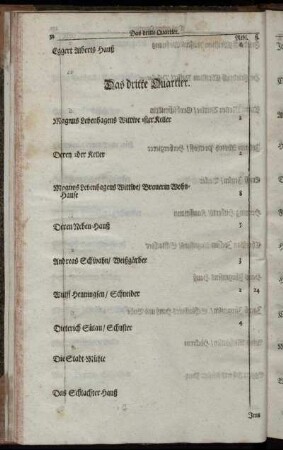 30
Das dritte Quartier.
Rthl. ß.
Eggert Alberts Hauß
6
Das dritte Quartier.
Magnus Levenhagens Wittwe 1ster Keller
2
Deren 2ter Keller
2
Magnus Levenhagens Wittwe/ Brauerin Wohn-
Hause
8
Deren Neben-Hauß
7
Andreas Schwahn/ Weißgärber
3
Wulff Henningsen/ Schneider
2 24
Dieterich Sülau/ Schuster
4
Die Stadt Mühle
Das Schlachter-Hauß